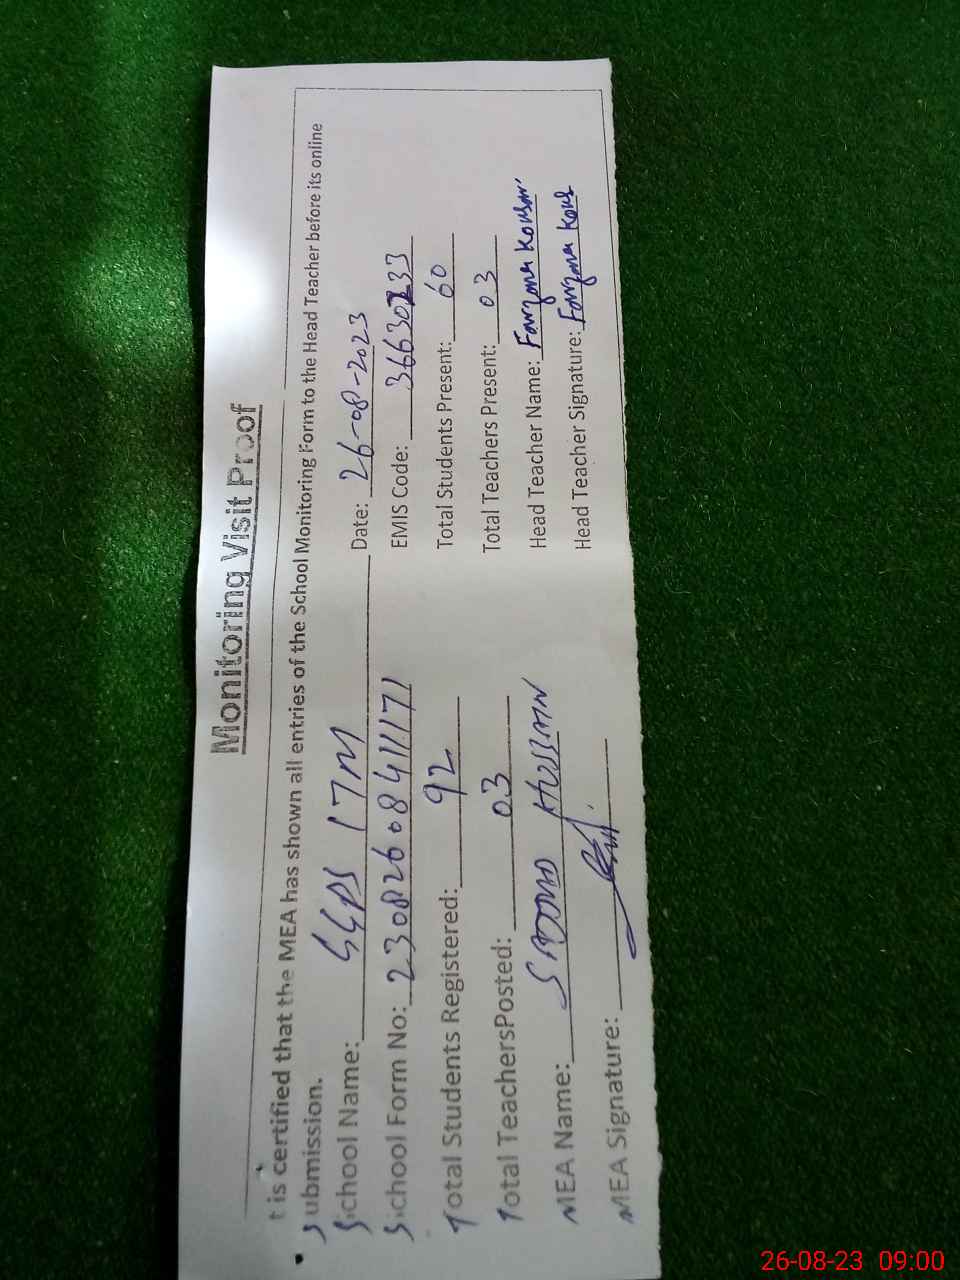 Monitoring Visit Proof
t is certified that the MEA has shown all entries of the School Monitoring Form to the Head Teacher before its online
submission.
School Name: GGPS 17M Date: 26-08-2023
School Form No: 23082608411171 EMIS Code: 36630233
Total Students Registered: 92 Total Students Present: 60
Total TeachersPosted: 03 Total Teachers Present: 03
MEA Name: HUSSAIN Head Teacher Name: Farzana Kousar
MEA Signature: Head Teacher Signature: Farzana Kous
26-08-23 09:00